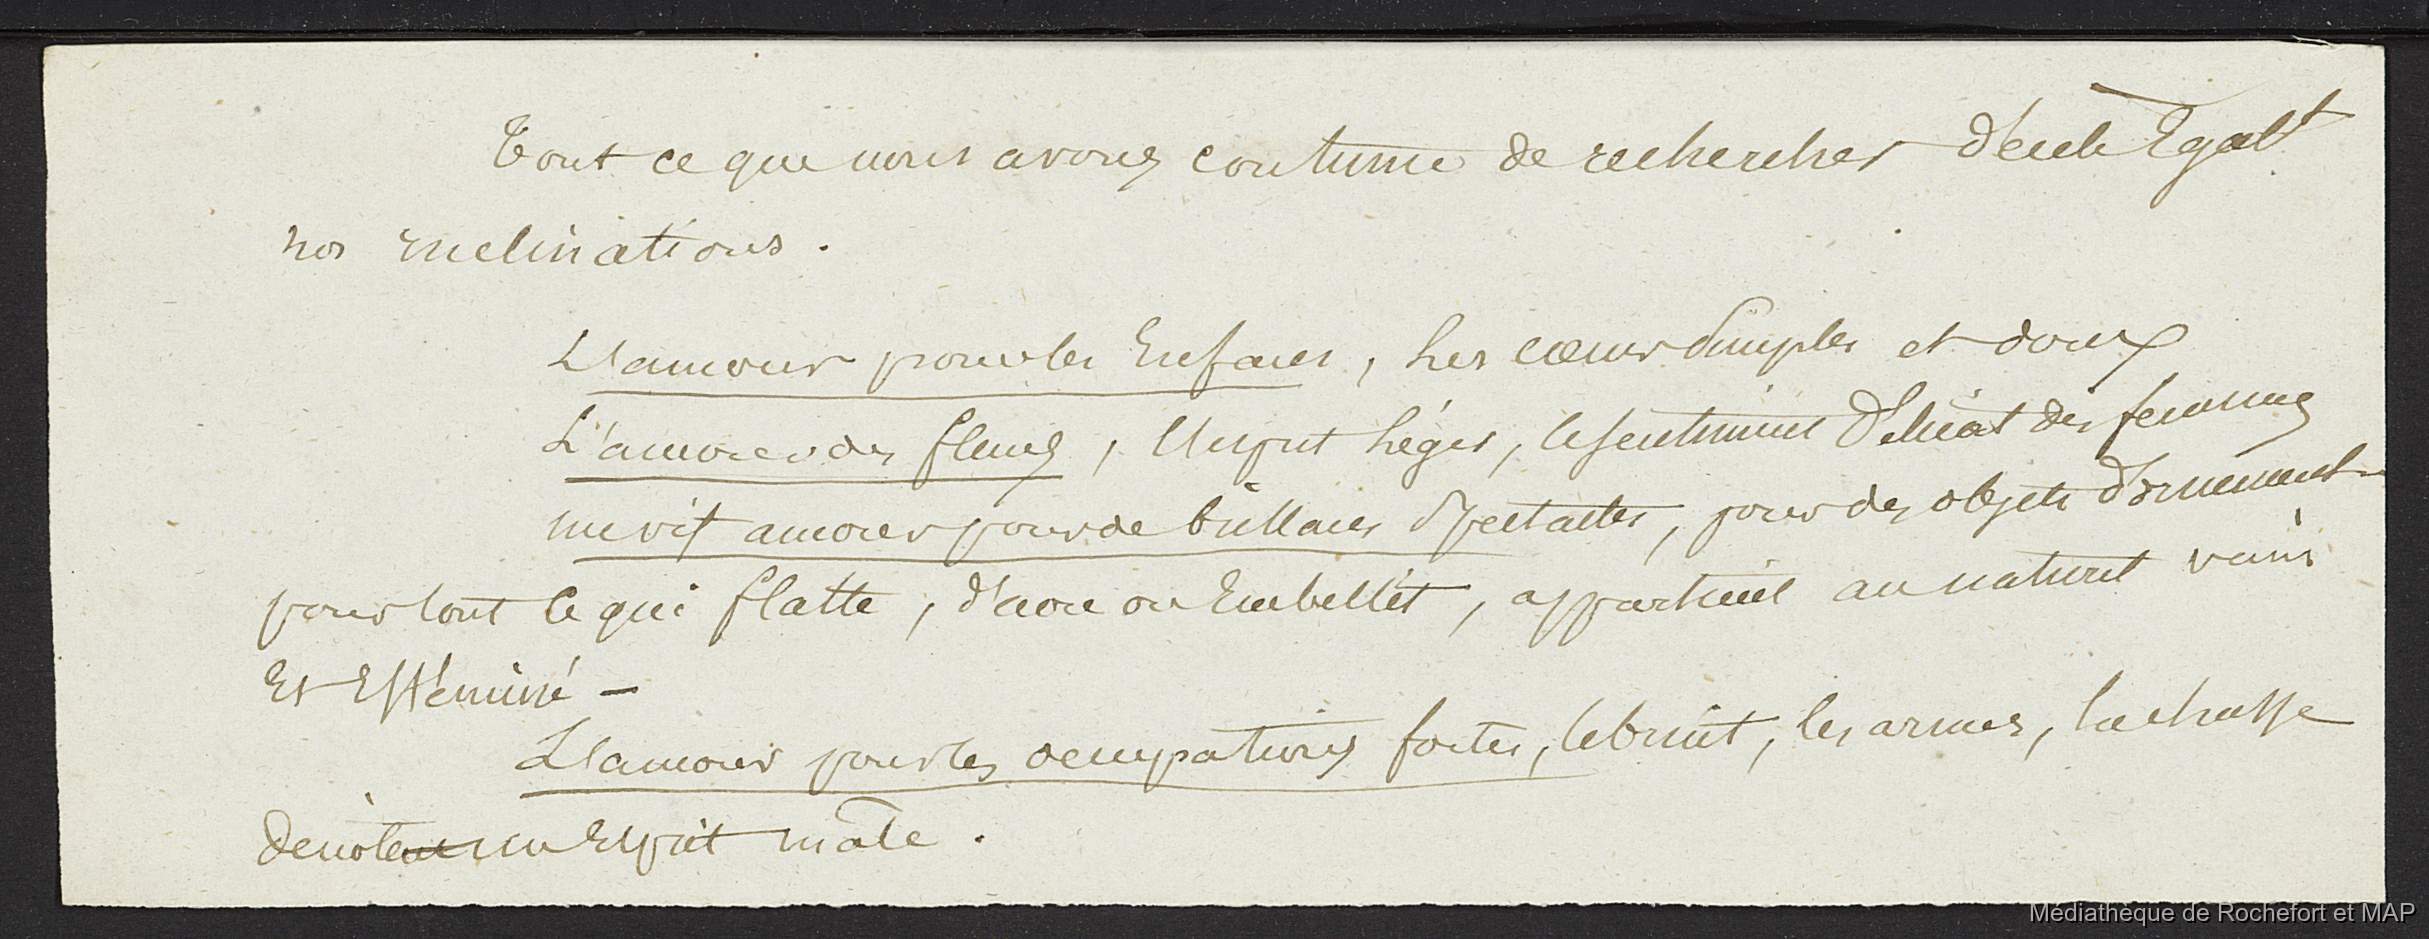 Tout ce que nous avons coutume de rechercher décele Egalt
nos inclinations.
L'amour pour les Enfans, les cœurs simples et doux
L'amour des fleurs, l'esprit léger, le sentiment délicat des femmes
un vif amour pour de brillans spectacles, pour des objets d'ornement
pour tout ce qui flatte, décore ou Embellit, appartient au naturel vain
Et Efféminé –
L'amour pour les occupations fortes, le bruit, les armes, la chasse
dénote un Esprit mâle.
Médiathèque de Rochefort et MAP